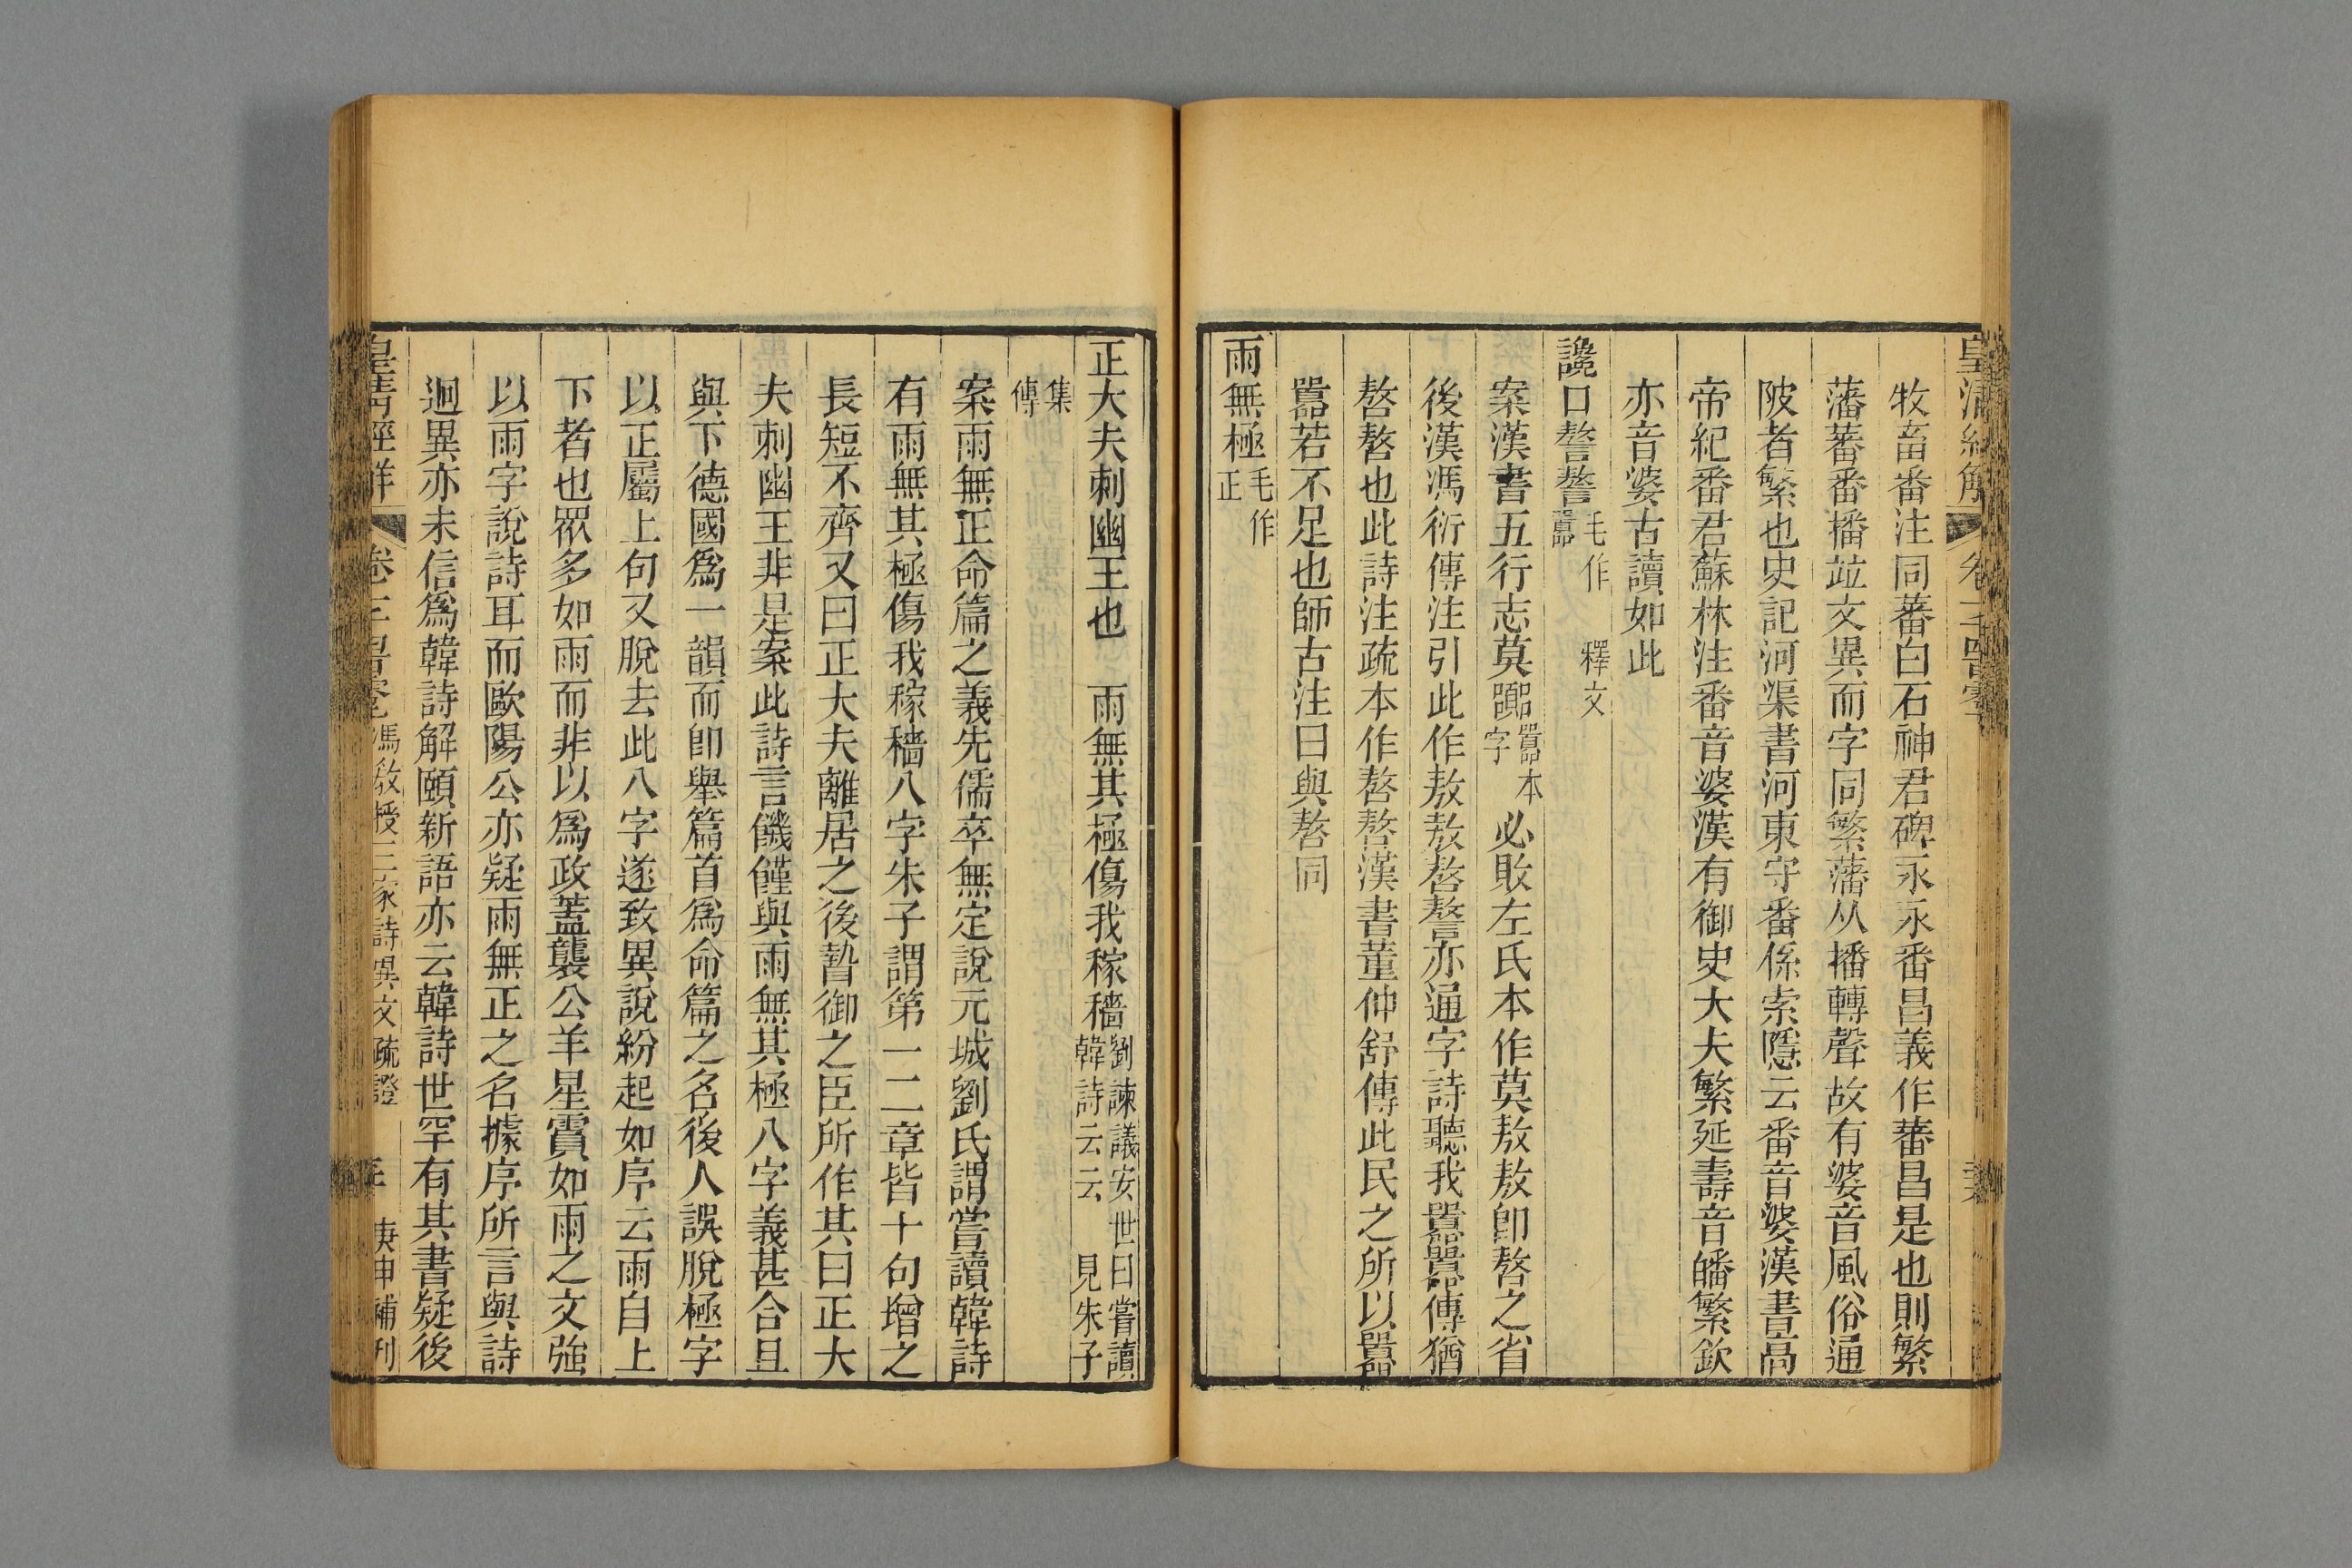 牧畜番注同蕃白石神君碑永永番昌義作蕃昌是也則繁
藩蕃番播竝文異而字同繁藩从播轉聲故有婆音風俗通
陂者繁也史記河渠書河東守番係索隱云番音婆漢書高
帝紀番君蘇林注番音婆漢有御史大夫繁延壽音皤繁欽
亦音婆古讀如此
讒口謷謷毛作囂 釋文
案漢書五行志莫嚻囂本字必敗左氏本作莫敖敖卽嗸之省
後漢馮衍傳注引此作敖敖嗸謷亦通字詩聽我囂囂傳猶
嗸嗸也此詩注疏本作嗸嗸漢書董仲舒傳此民之所以囂
囂若不足也師古注曰與嗸同
雨無極毛作正
正大夫刺幽王也 雨無其極傷我稼穡劉諫議安世曰嘗讀韓詩云云 見朱子
集傳
案雨無正命篇之義先儒卒無定說元城劉氏謂嘗讀韓詩
有雨無其極傷我稼穡八字朱子謂第一二章皆十句增之
長短不齊又曰正大夫離居之後暬御之臣所作其曰正大
夫刺幽王非是案此詩言饑饉與雨無其極八字義甚合且
與下德國爲一韻而卽舉篇首爲命篇之名後人誤脫極字
以正屬上句又脫去此八字遂致異說紛起如序云雨自上
下者也眾多如雨而非以爲政蓋襲公羊星霣如雨之文強
以雨字說詩耳而歐陽公亦疑雨無正之名據序所言與詩
迥異亦未信爲韓詩解頤新語亦云韓詩世罕有其書疑後
馮教授三家詩異文疏證
庚申補刊